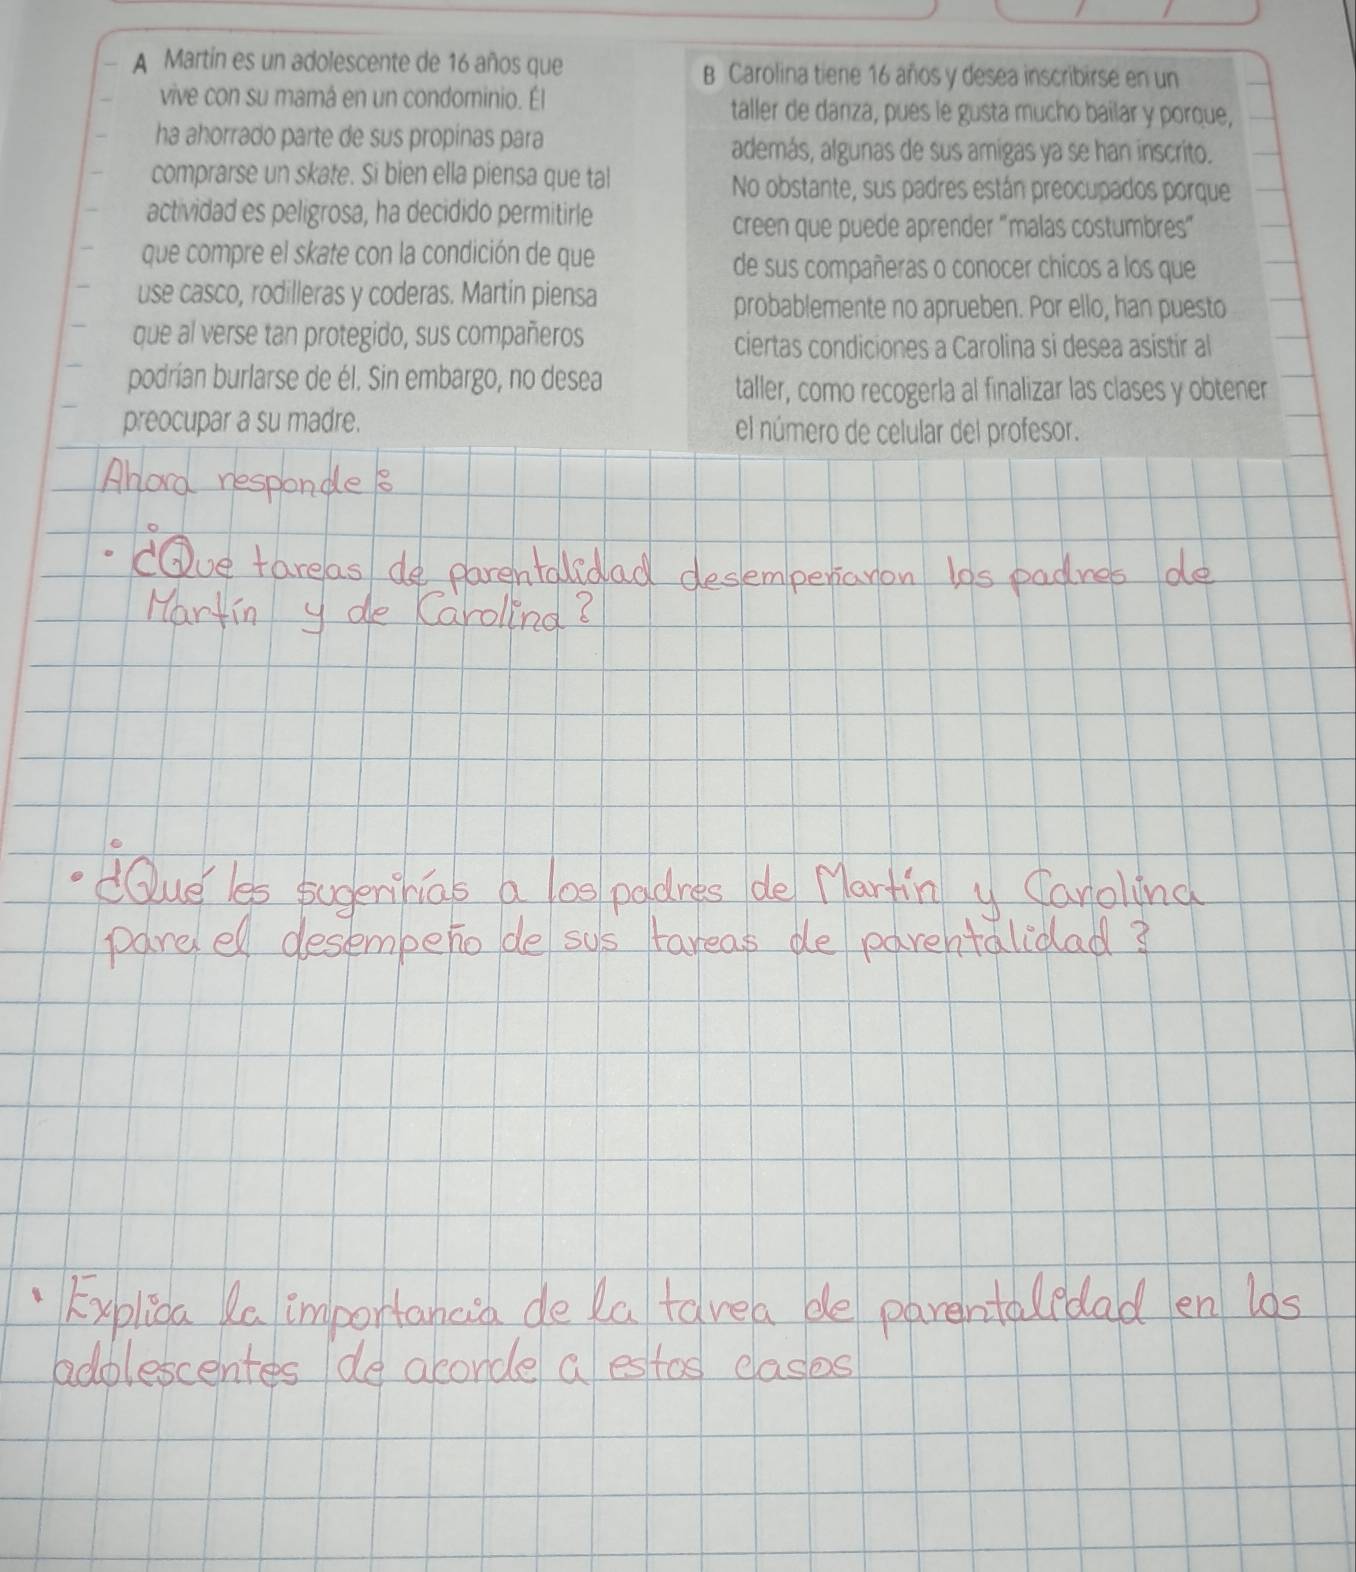 A Martín es un adolescente de 16 años que
vive con su mamá en un condominio. Él
ha ahorrado parte de sus propinas para
comprarse un skate. Si bien ella piensa que tal
actividad es peligrosa, ha decidido permitirle
que compre el skate con la condición de que
use casco, rodilleras y coderas. Martín piensa
que al verse tan protegido, sus compañeros
podrían burlarse de él. Sin embargo, no desea
preocupar a su madre.
B Carolina tiene 16 años y desea inscribirse en un
taller de danza, pues le gusta mucho bailar y porque,
además, algunas de sus amigas ya se han inscrito.
No obstante, sus padres están preocupados porque
creen que puede aprender "malas costumbres"
de sus compañeras o conocer chicos a los que
probablemente no aprueben. Por ello, han puesto
ciertas condiciones a Carolina si desea asistir al
taller, como recogerla al finalizar las clases y obtener
el número de celular del profesor.
Ahora responde:
• ¿Que tareas de parentalidad desempeñaron los padres de
Martín y de Carolina?
• ¿Qué les sugerirías a los padres de Martín y Carolina
para el desempeño de sus tareas de parentalidad?
• Explica la importancia de la tarea de parentalidad en los
adolescentes de acorde a estos casos